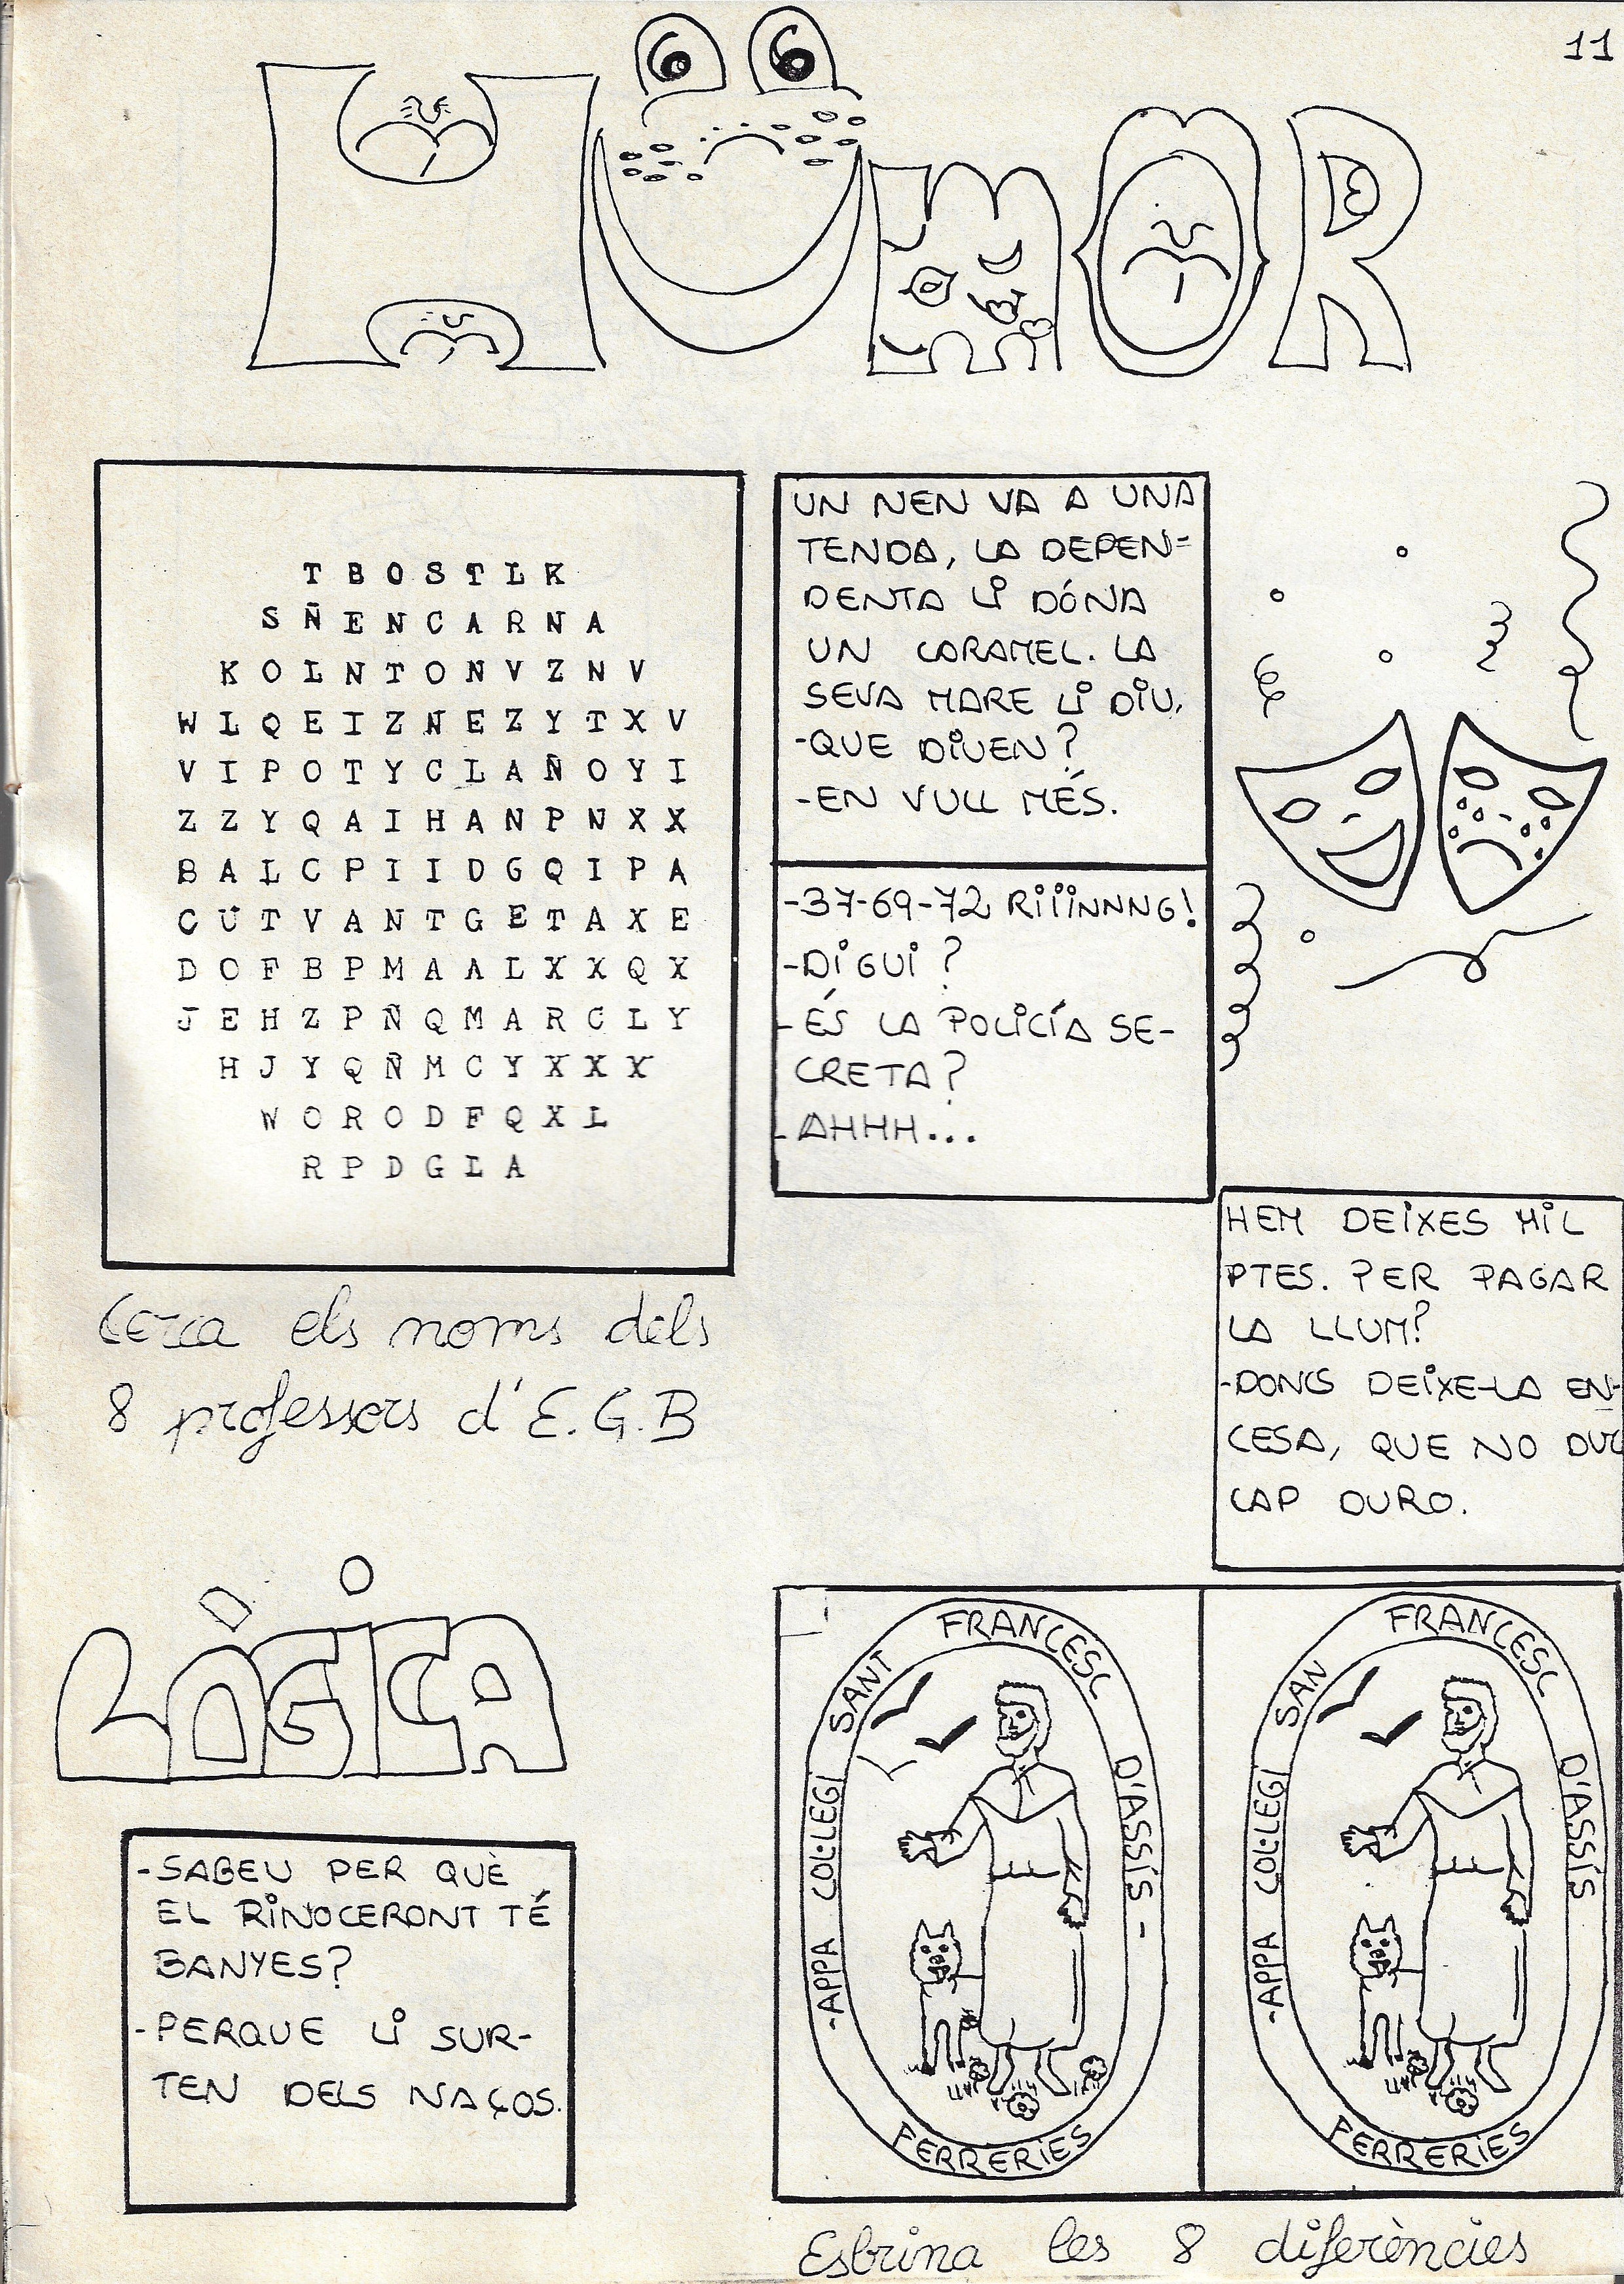 11
HUMOR
T B O S T L K
S Ñ E N C A R N A
K O L N T O N V Z N V
W L Q E I Z N E Z Y T X V
V I P O T Y C L A Ñ O Y I
Z Z Y Q A I H A N P N X X
B A L C P I I D G Q I P A
C U T V A N T G E T A X E
D O F B P M A A L X X Q X
J E H Z P Ñ Q M A R C L Y
H J Y Q Ñ M C Y X X X
W O R O D F Q X L
R P D G L A
Cerca els noms dels
8 professors d'E.G.B
UN NEN VA A UNA
TENDA, LA DEPEN=
DENTA LI DÓNA
UN CARAMEL. LA
SEVA MARE LI DIU,
-QUE DIUEN?
-EN VULL MÉS.
-37-69-72 RiiiNNNG!
-DIGUI?
-ÉS LA POLICÍA SE-
CRETA?
-AHHH...
HEM DEIXES MIL
PTES. PER PAGAR
LA LLUM?
-DONCS DEIXE-LA EN-
CESA, QUE NO DUC
CAP DURO.
LÒGICA
-SABEU PER QUÈ
EL RINOCERONT TÉ
BANYES?
-PERQUE LI SUR-
TEN DELS NAÇOS.
-APPA COL·LEGI SANT FRANCESC D'ASSÍS-
FERRERIES
-APPA COL·LEGI SAN FRANCESC D'ASSÍS
FERRERIES
Esbrina les 8 diferències